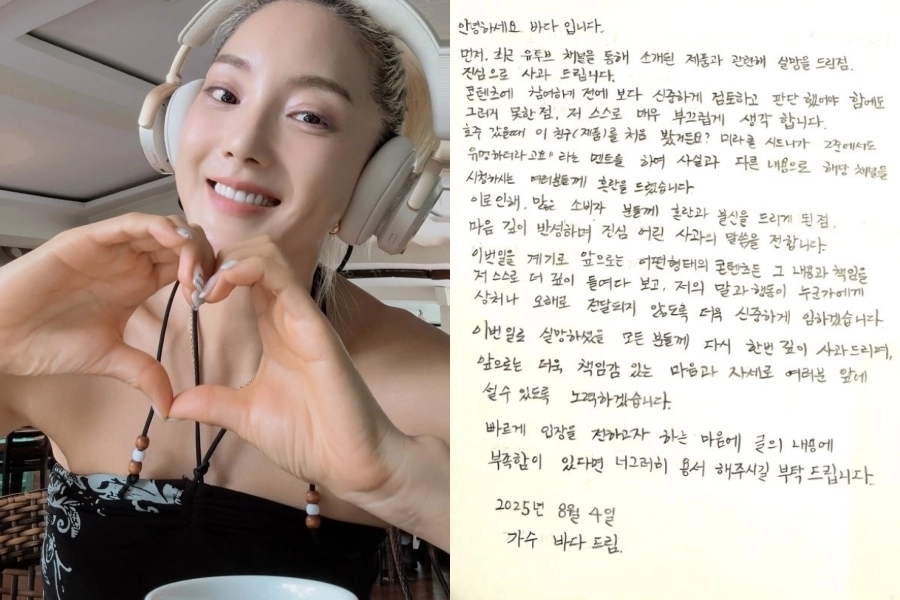 안녕하세요 바다 입니다.
먼저, 최근 유투브 채널을 통해 소개된 제품과 관련해 실망을 드린점.
진심으로 사과 드립니다.
콘텐츠에 참여하기 전에 보다 신중하게 검토하고 판단 했어야 함에도
그러지 못한 점, 저 스스로 매우 부끄럽게 생각 합니다.
호주 갔을때 이 친구(제품)를 처음 봤거든요? 미라클 시드니가 고준에서도
유명하더라고요" 라는 멘트를 하여 사실과 다른 내용으로 해당 채널을
시청하시는 여러분들께 혼란을 드렸습니다
이로 인해, 많은 소비자 분들께 혼란과 불신을 드리게 된 점.
마음 깊이 반성하며 진심 어린 사과의 말씀을 전합니다.
이번일을 계기로 앞으로는 어떤형태의 콘텐츠든 그 내용과 책임을
저 스스로 더 깊이 들여다 보고, 저의 말과 행동이 누군가에게
상처나 오해로 전달되지 않도록 더욱 신중하게 임하겠습니다
이번 일로 실망하셨을 모든 분들께 다시 한번 깊이 사과드리며,
앞으로는 더욱 책임감 있는 마음과 자세로 여러분 앞에
설수 있도록 노력하겠습니다.
빠르게 입장을 전하고자 하는 마음에 글의 내용에
부족함이 있다면 너그러히 용서 해주시길 부탁 드립니다.
2025년 8월 4일
가수 바다 드림.